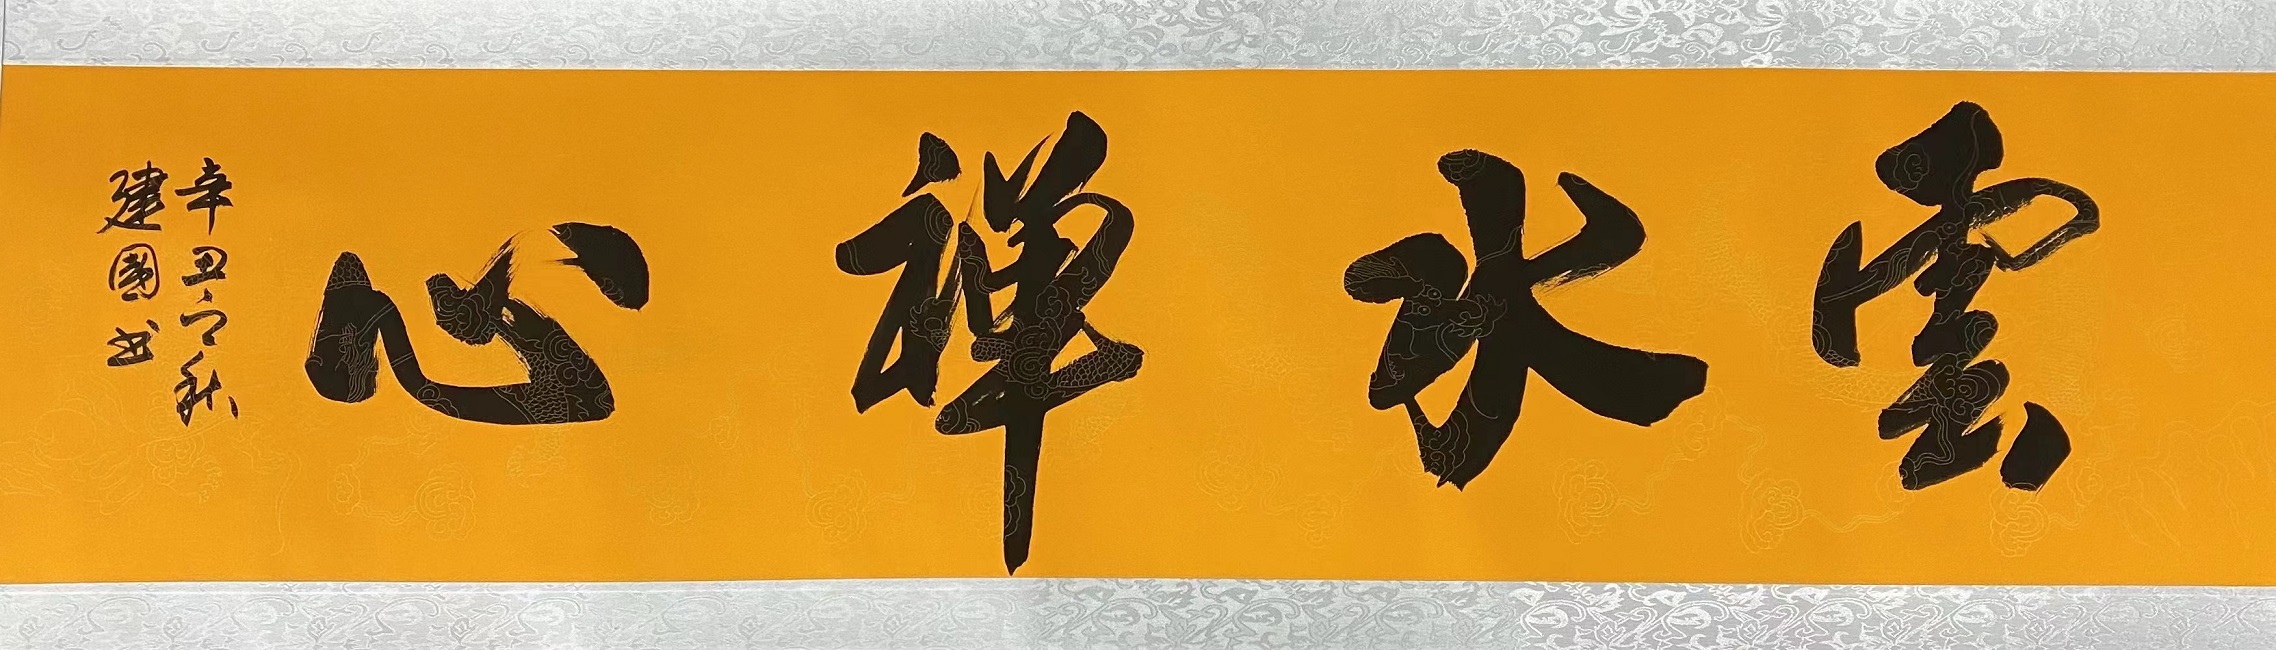 雲水禪心
辛丑之秋
建國书